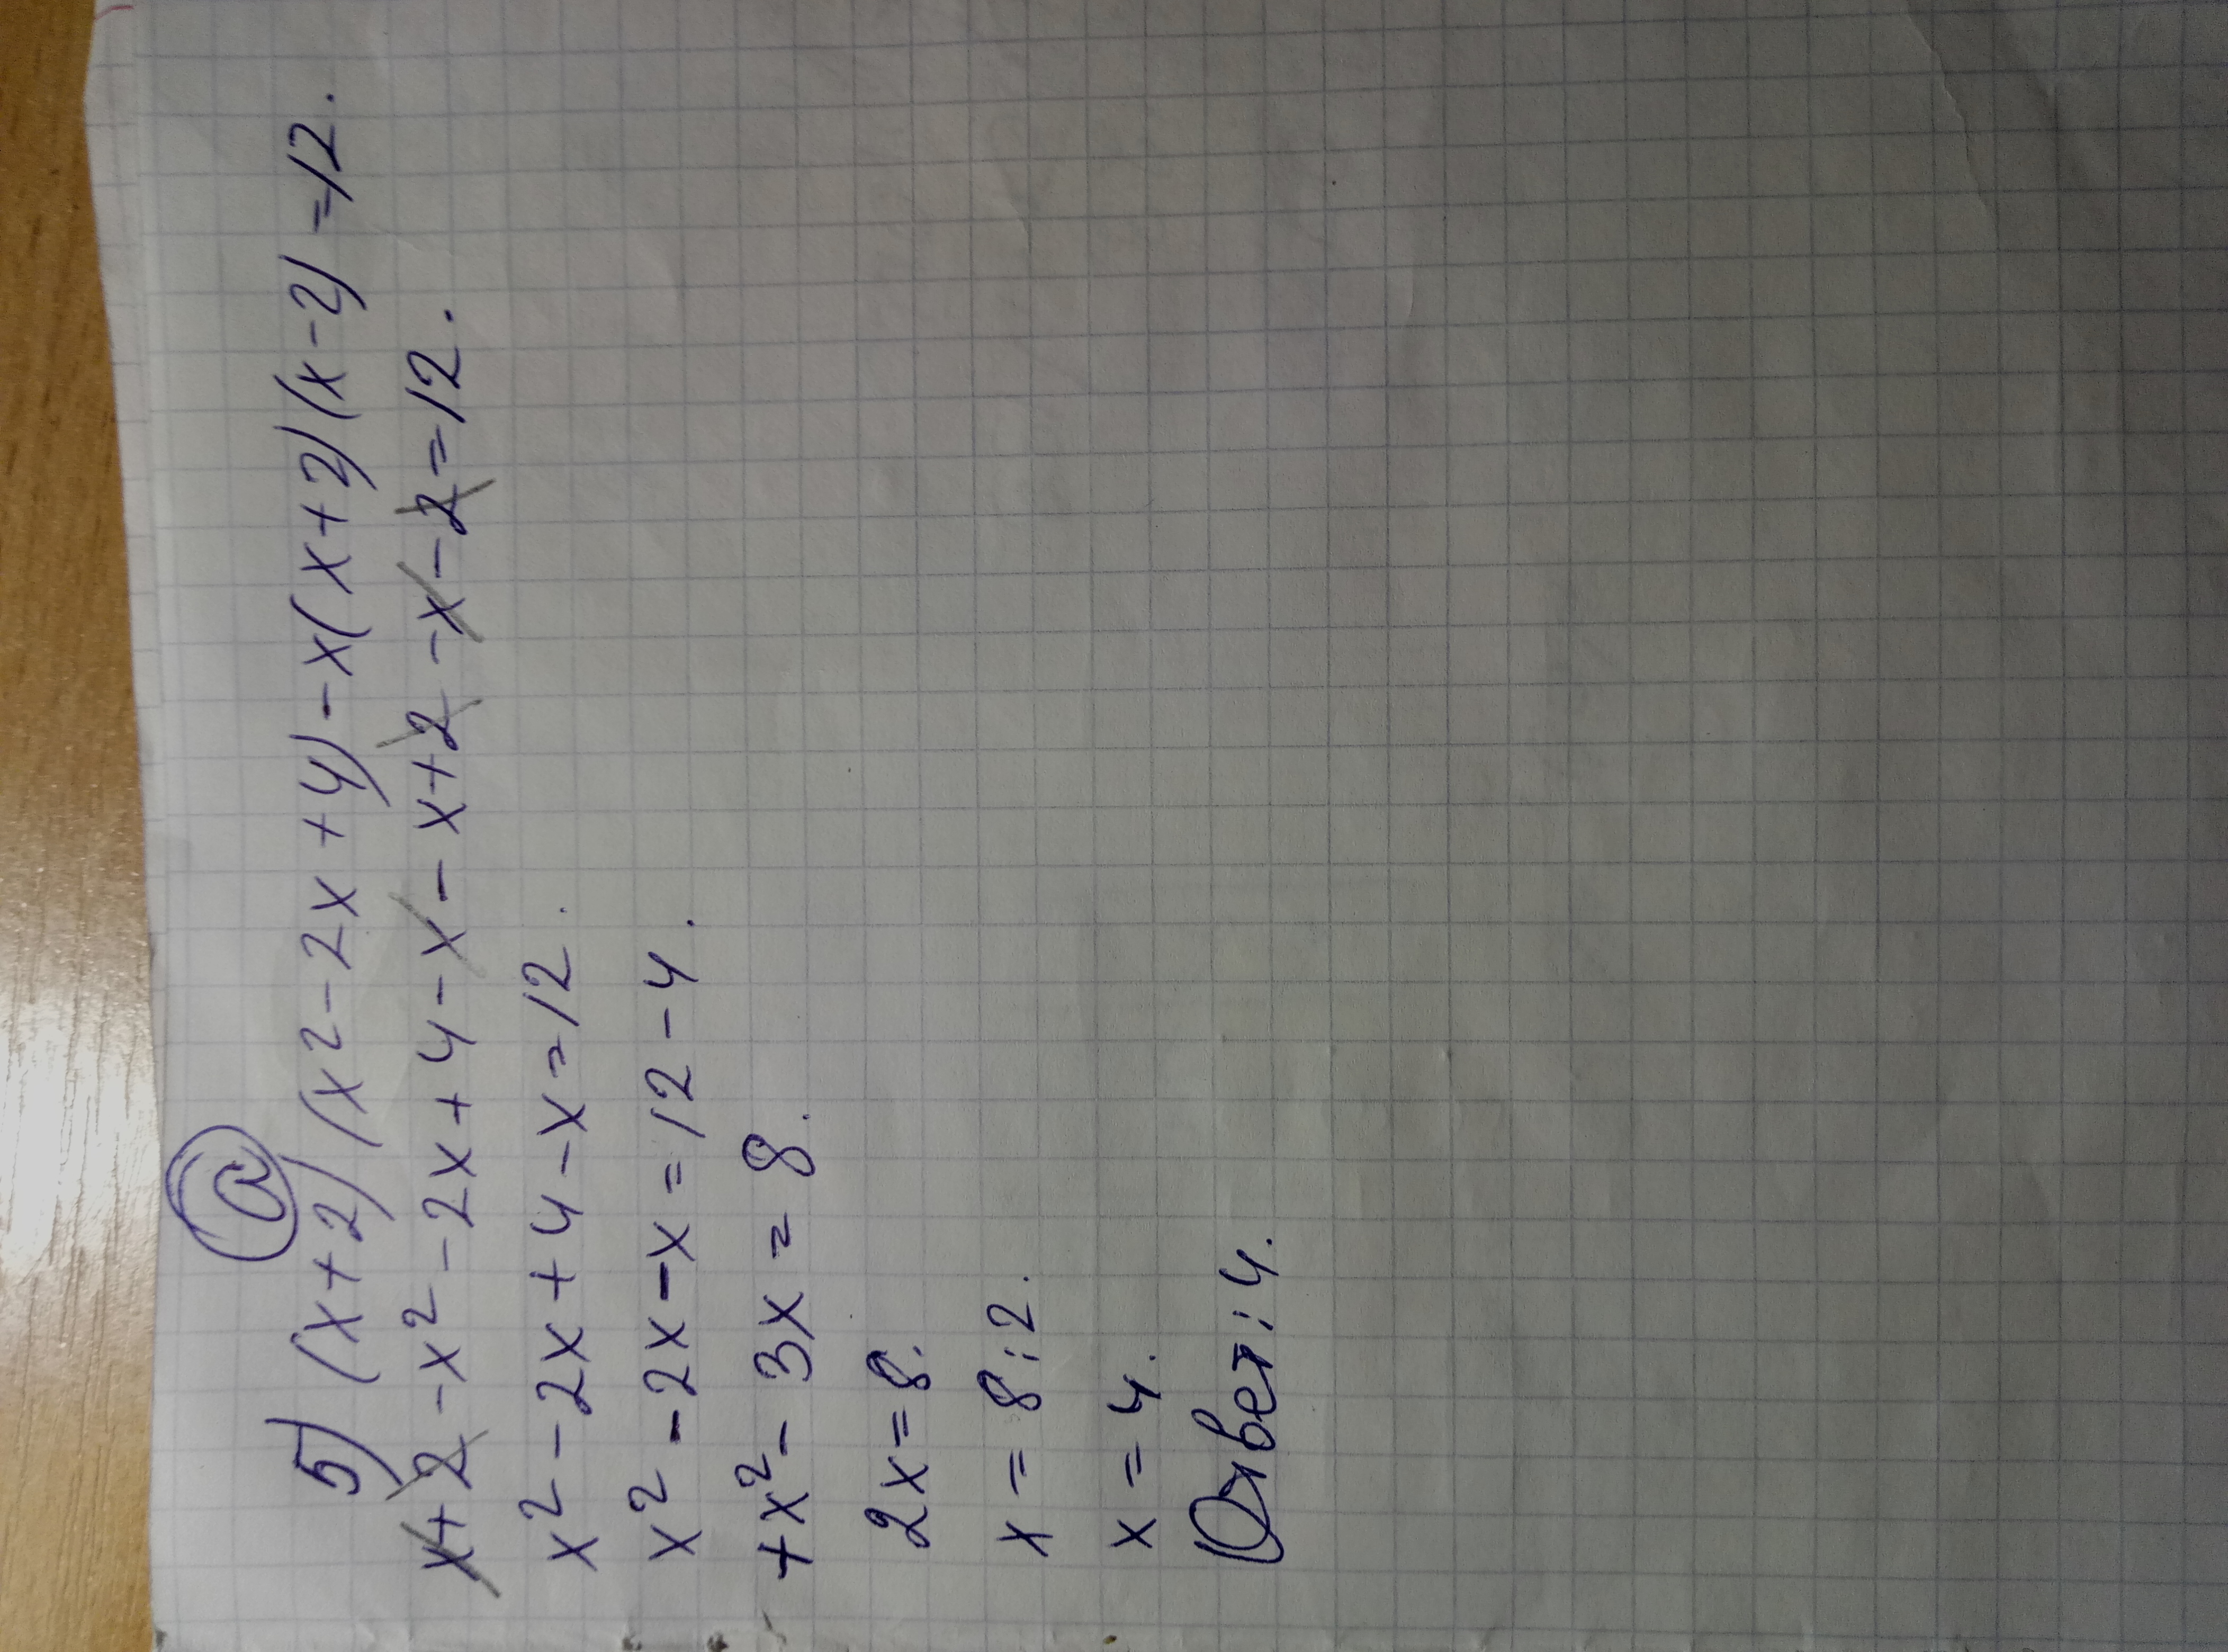 а
5) (x+2)(x²-2x+4)-x(x+2)(x-2)=12.
x+2-x²-2x+4-x-x+2-x-2=12.
x²-2x+4-x=12.
x²-2x-x=12-4.
+x²-3x=8.
2x=8.
x=8:2.
x=4.
Ответ:4.